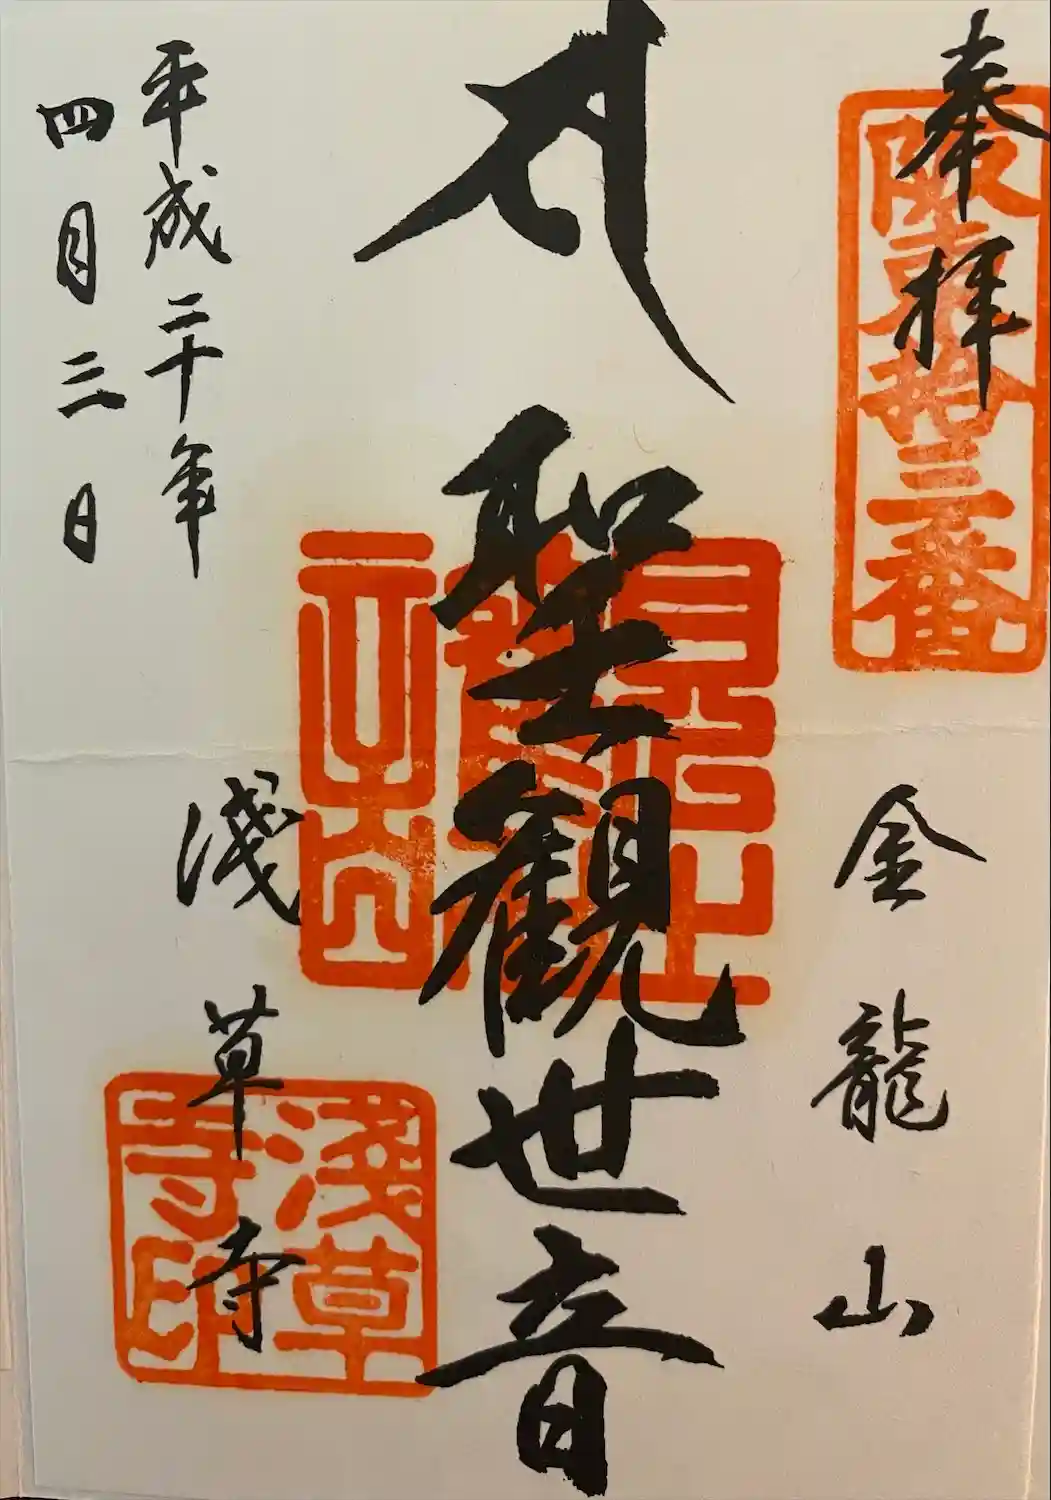 奉拝
阪東拾三番
金龍山
聖観世音
淺草寺
淺草寺印
平成二十年
四月三日